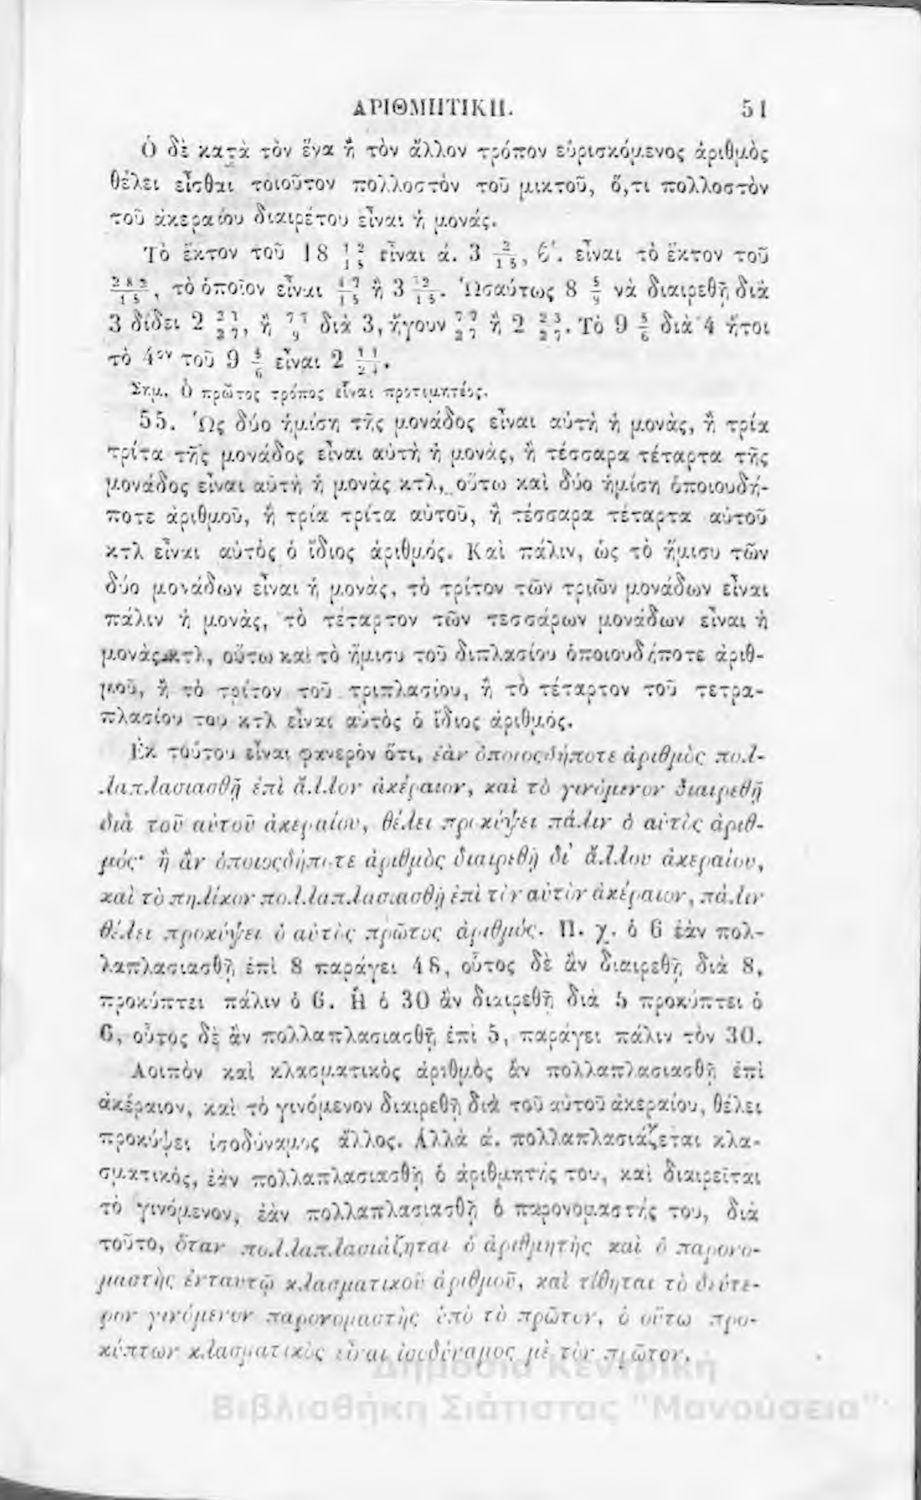 ΑΡΙΘΜΗΤΙΚΗ. 51
Ὁ δὲ κατὰ τὸν ἕνα ἢ τὸν ἄλλον τρόπον εὑρισκόμενος ἀριθμὸς
θέλει εἶσθαι τοιοῦτον πολλοστὸν τοῦ μικτοῦ, ὅ,τι πολλοστὸν
τοῦ ἀκεραίου διαιρέτου εἶναι ἡ μονάς.
Τὸ ἕκτον τοῦ 18 12/15 εἶναι ά. 3 2/15, 6΄. εἶναι τὸ ἕκτον τοῦ
282/15, τὸ ὁποῖον εἶναι 47/15 ἢ 3 2/15. Ὡσαύτως 8 5/9 νὰ διαιρεθῇ διὰ
3 δίδει 2 23/27, ἢ 77/9 διὰ 3, ἤγουν 77/27 ἢ 2 23/27. Τὸ 9 5/6 διὰ 4 ἤτοι
τὸ 4ον τοῦ 9 5/6 εἶναι 2 11/24.
Σημ. Ὁ πρῶτος τρόπος εἶναι προτιμητέος.
55. Ὡς δύο ἡμίση τῆς μονάδος εἶναι αὐτὴ ἡ μονὰς, ἢ τρία
τρίτα τῆς μονάδος εἶναι αὐτὴ ἡ μονάς, ἢ τέσσαρα τέταρτα τῆς
μονάδος εἶναι αὐτὴ ἡ μονὰς κτλ, οὕτω καὶ δύο ἡμίση ὁποιουδή-
ποτε ἀριθμοῦ, ἢ τρία τρίτα αὐτοῦ, ἢ τέσσαρα τέταρτα αὐτοῦ
κτλ εἶναι αὐτὸς ὁ ἴδιος ἀριθμός. Καὶ πάλιν, ὡς τὸ ἥμισυ τῶν
δύο μονάδων εἶναι ἡ μονάς, τὸ τρίτον τῶν τριῶν μονάδων εἶναι
πάλιν ἡ μονάς, τὸ τέταρτον τῶν τεσσάρων μονάδων εἶναι ἡ
μονὰς κτλ, οὕτω καὶ τὸ ἥμισυ τοῦ διπλασίου ὁποιουδήποτε ἀριθ-
μοῦ, ἢ τὸ τρίτον τοῦ τριπλασίου, ἢ τὸ τέταρτον τοῦ τετρα-
πλασίου του κτλ εἶναι αὐτὸς ὁ ἴδιος ἀριθμός.
Ἐκ τούτου εἶναι φανερὸν ὅτι, ἐὰν ὁποιοςδήποτε ἀριθμὸς πολ-
λαπλασιασθῇ ἐπὶ ἄλλον ἀκέραιον, καὶ τὸ γινόμενον διαιρεθῇ
διὰ τοῦ αὐτοῦ ἀκεραίου, θέλει προκύψει πάλιν ὁ αὐτὸς ἀριθ-
μός· ἢ ἂν ὁποιοςδήποτε ἀριθμὸς διαιρεθῇ δι᾽ ἄλλου ἀκεραίου,
καὶ τὸ πηλίκον πολλαπλασιασθῇ ἐπὶ τὸν αὐτὸν ἀκέραιον, πάλιν
θέλει προκύψει ὁ αὐτὸς πρῶτος ἀριθμός. Π. χ. ὁ 6 ἐὰν πολ-
λαπλασιασθῇ ἐπὶ 8 παράγει 48, οὗτος δὲ ἂν διαιρεθῇ διὰ 8,
προκύπτει πάλιν ὁ 6. Ἢ ὁ 30 ἂν διαιρεθῇ διὰ 5 προκύπτει ὁ
6, οὗτος δὲ ἂν πολλαπλασιασθῇ ἐπὶ 5, παράγει πάλιν τὸν 30.
Λοιπὸν καὶ κλασματικὸς ἀριθμὸς ἂν πολλαπλασιασθῇ ἐπὶ
ἀκέραιον, καὶ τὸ γινόμενον διαιρεθῇ διὰ τοῦ αὐτοῦ ἀκεραίου, θέλει
προκύψει ἰσοδύναμος ἄλλος. Ἀλλὰ ά. πολλαπλασιάζεται κλα-
σματικός, ἐὰν πολλαπλασιασθῇ ὁ ἀριθμητής του, καὶ διαιρεῖται
τὸ γινόμενον, ἐὰν πολλαπλασιασθῇ ὁ παρονομαστής του, διὰ
τοῦτο, ὅταν πολλαπλασιάζηται ὁ ἀριθμητὴς καὶ ὁ παρονο-
μαστὴς ἐνταυτῷ κλασματικοῦ ἀριθμοῦ, καὶ τίθηται τὸ δεύτε-
ρον γινόμενον παρονομαστὴς ὑπὸ τὸ πρῶτον, ὁ οὕτω προ-
κύπτων κλασματικὸς εἶναι ἰσοδύναμος μὲ τὸν πρῶτον.
Δημόσια Κεντρική
Βιβλιοθήκη Σιάτιστας "Μανούσεια"